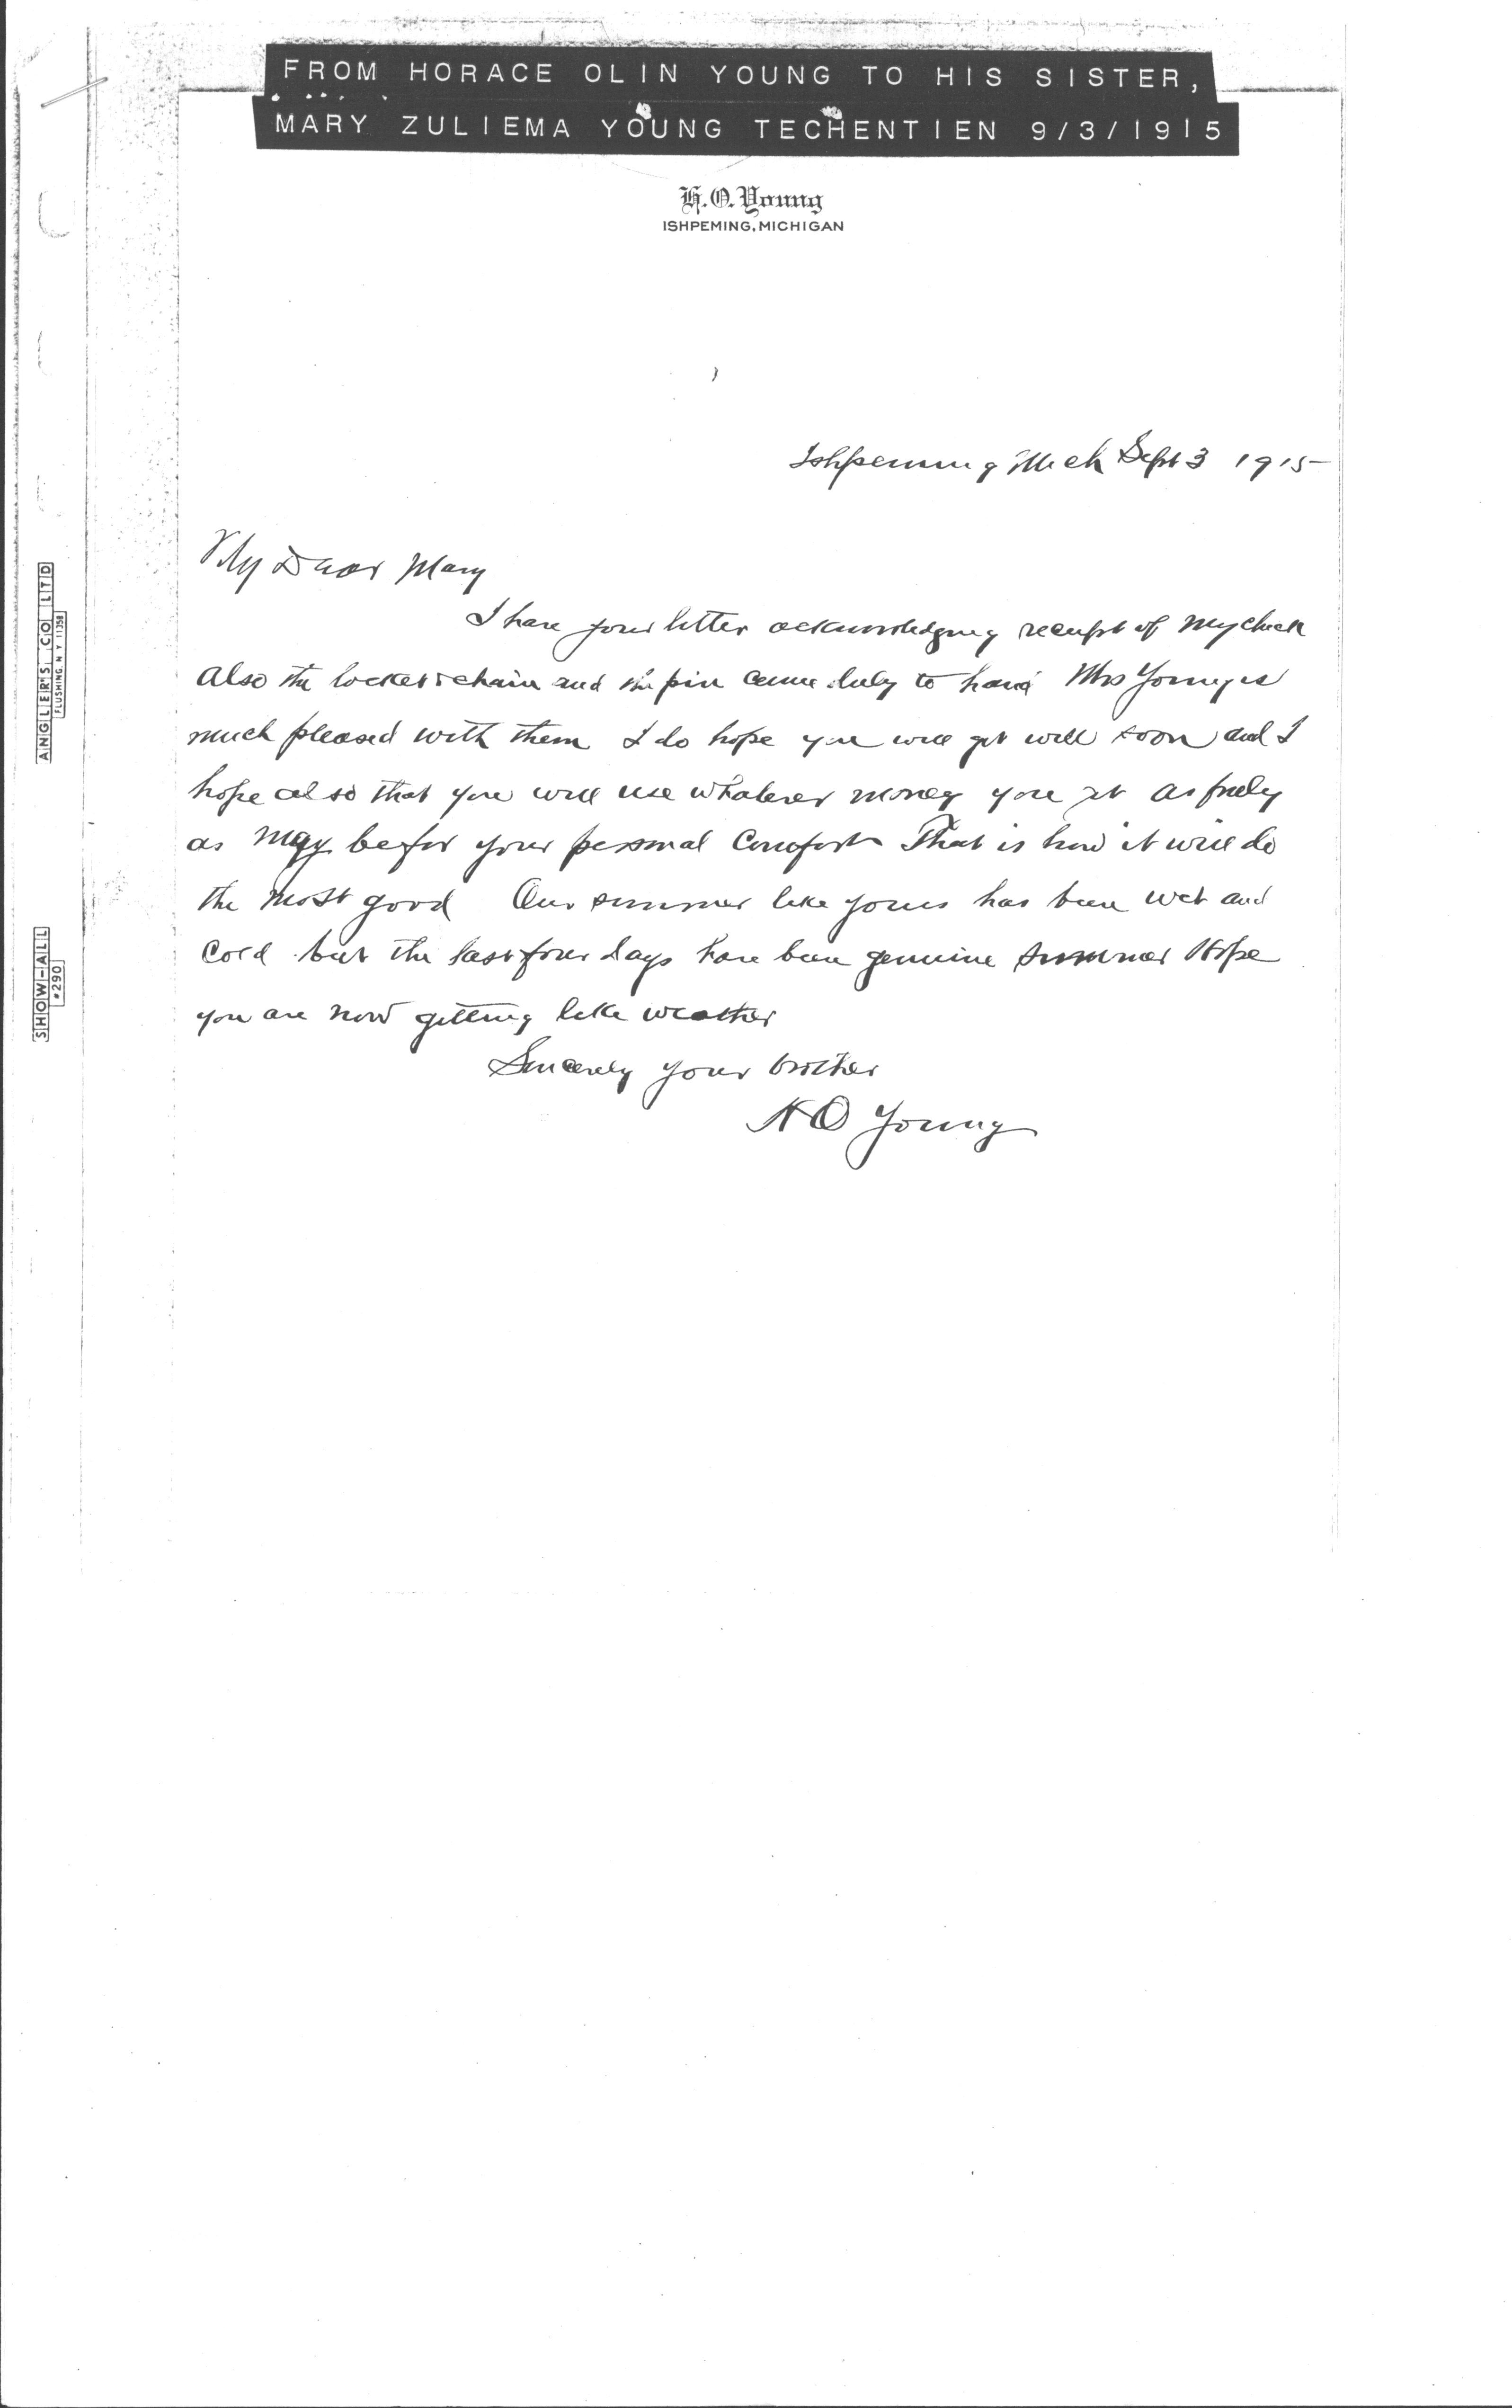 FROM HORACE OLIN YOUNG TO HIS SISTER,
MARY ZULIEMA YOUNG TECHENTIEN 9/3/1915
H. O. Young
ISHPEMING, MICHIGAN
Ishpeming Mich Sept 3 1915
My Dear Mary
I have your letter acknowledging receipt of my check
Also the locket & chain and the pin came duly to hand Mrs Young is
much pleased with them I do hope you will get well soon and I
hope also that you will use whatever money you get as freely
as may be for your personal comfort That is how it will do
the most good Our summer like yours has been wet and
cold but the last four days have been genuine summer Hope
you are now getting like weather
Sincerely your brother
H O Young
ANGLER'S CO LTD
FLUSHING N Y 11358
SHOW-ALL
#290